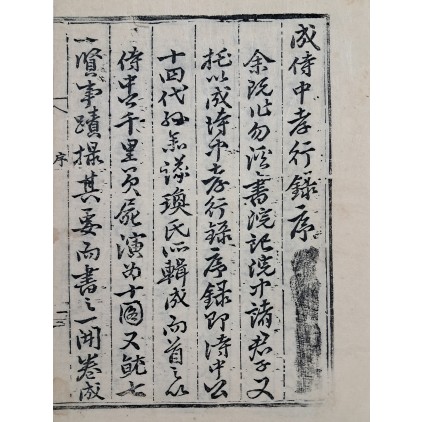 成侍中孝行錄序
余旣作勿溪書院記院中諸君子又
托以成侍中孝行錄序錄即侍中公
十四代孫 璟氏所輯成而首之以
侍中公千里負屍演為十圖又 七
賢事蹟撮其要而書之一開卷成
序